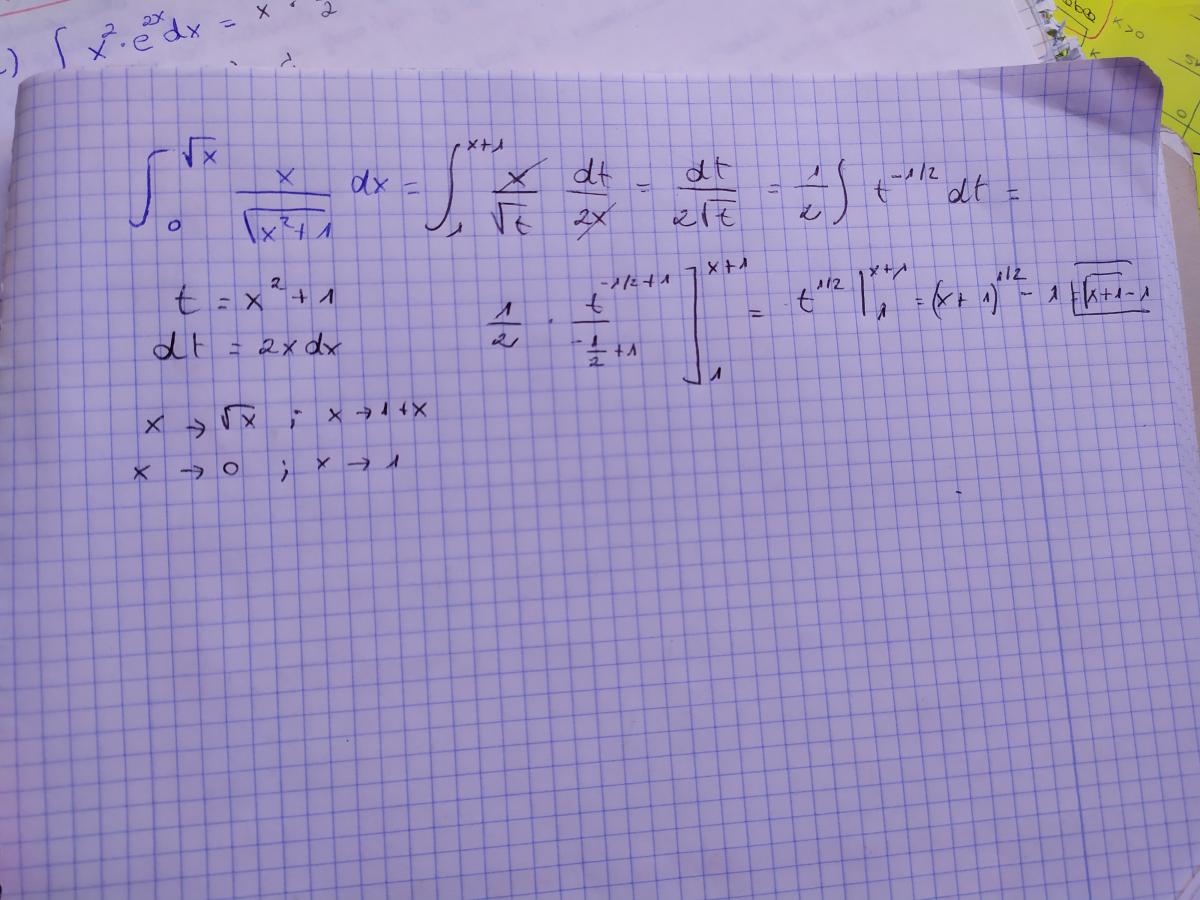 ∫ x²·e^{2x} dx = x · 2
K>0
K
0
∫_0^{√x} x/√(x²+1) dx = ∫_1^{x+1} x/√t dt/2x = dt/2√t = 1/2 ∫ t^{-1/2} dt =
t = x² + 1
1/2 · t^{-1/2+1}/(-1/2+1) ]_1^{x+1} = t^{1/2} |_1^{x+1} = (x+1)^{1/2} - 1 = √(x+1) - 1
dt = 2x dx
x → √x ; x → 1+x
x → 0 ; x → 1